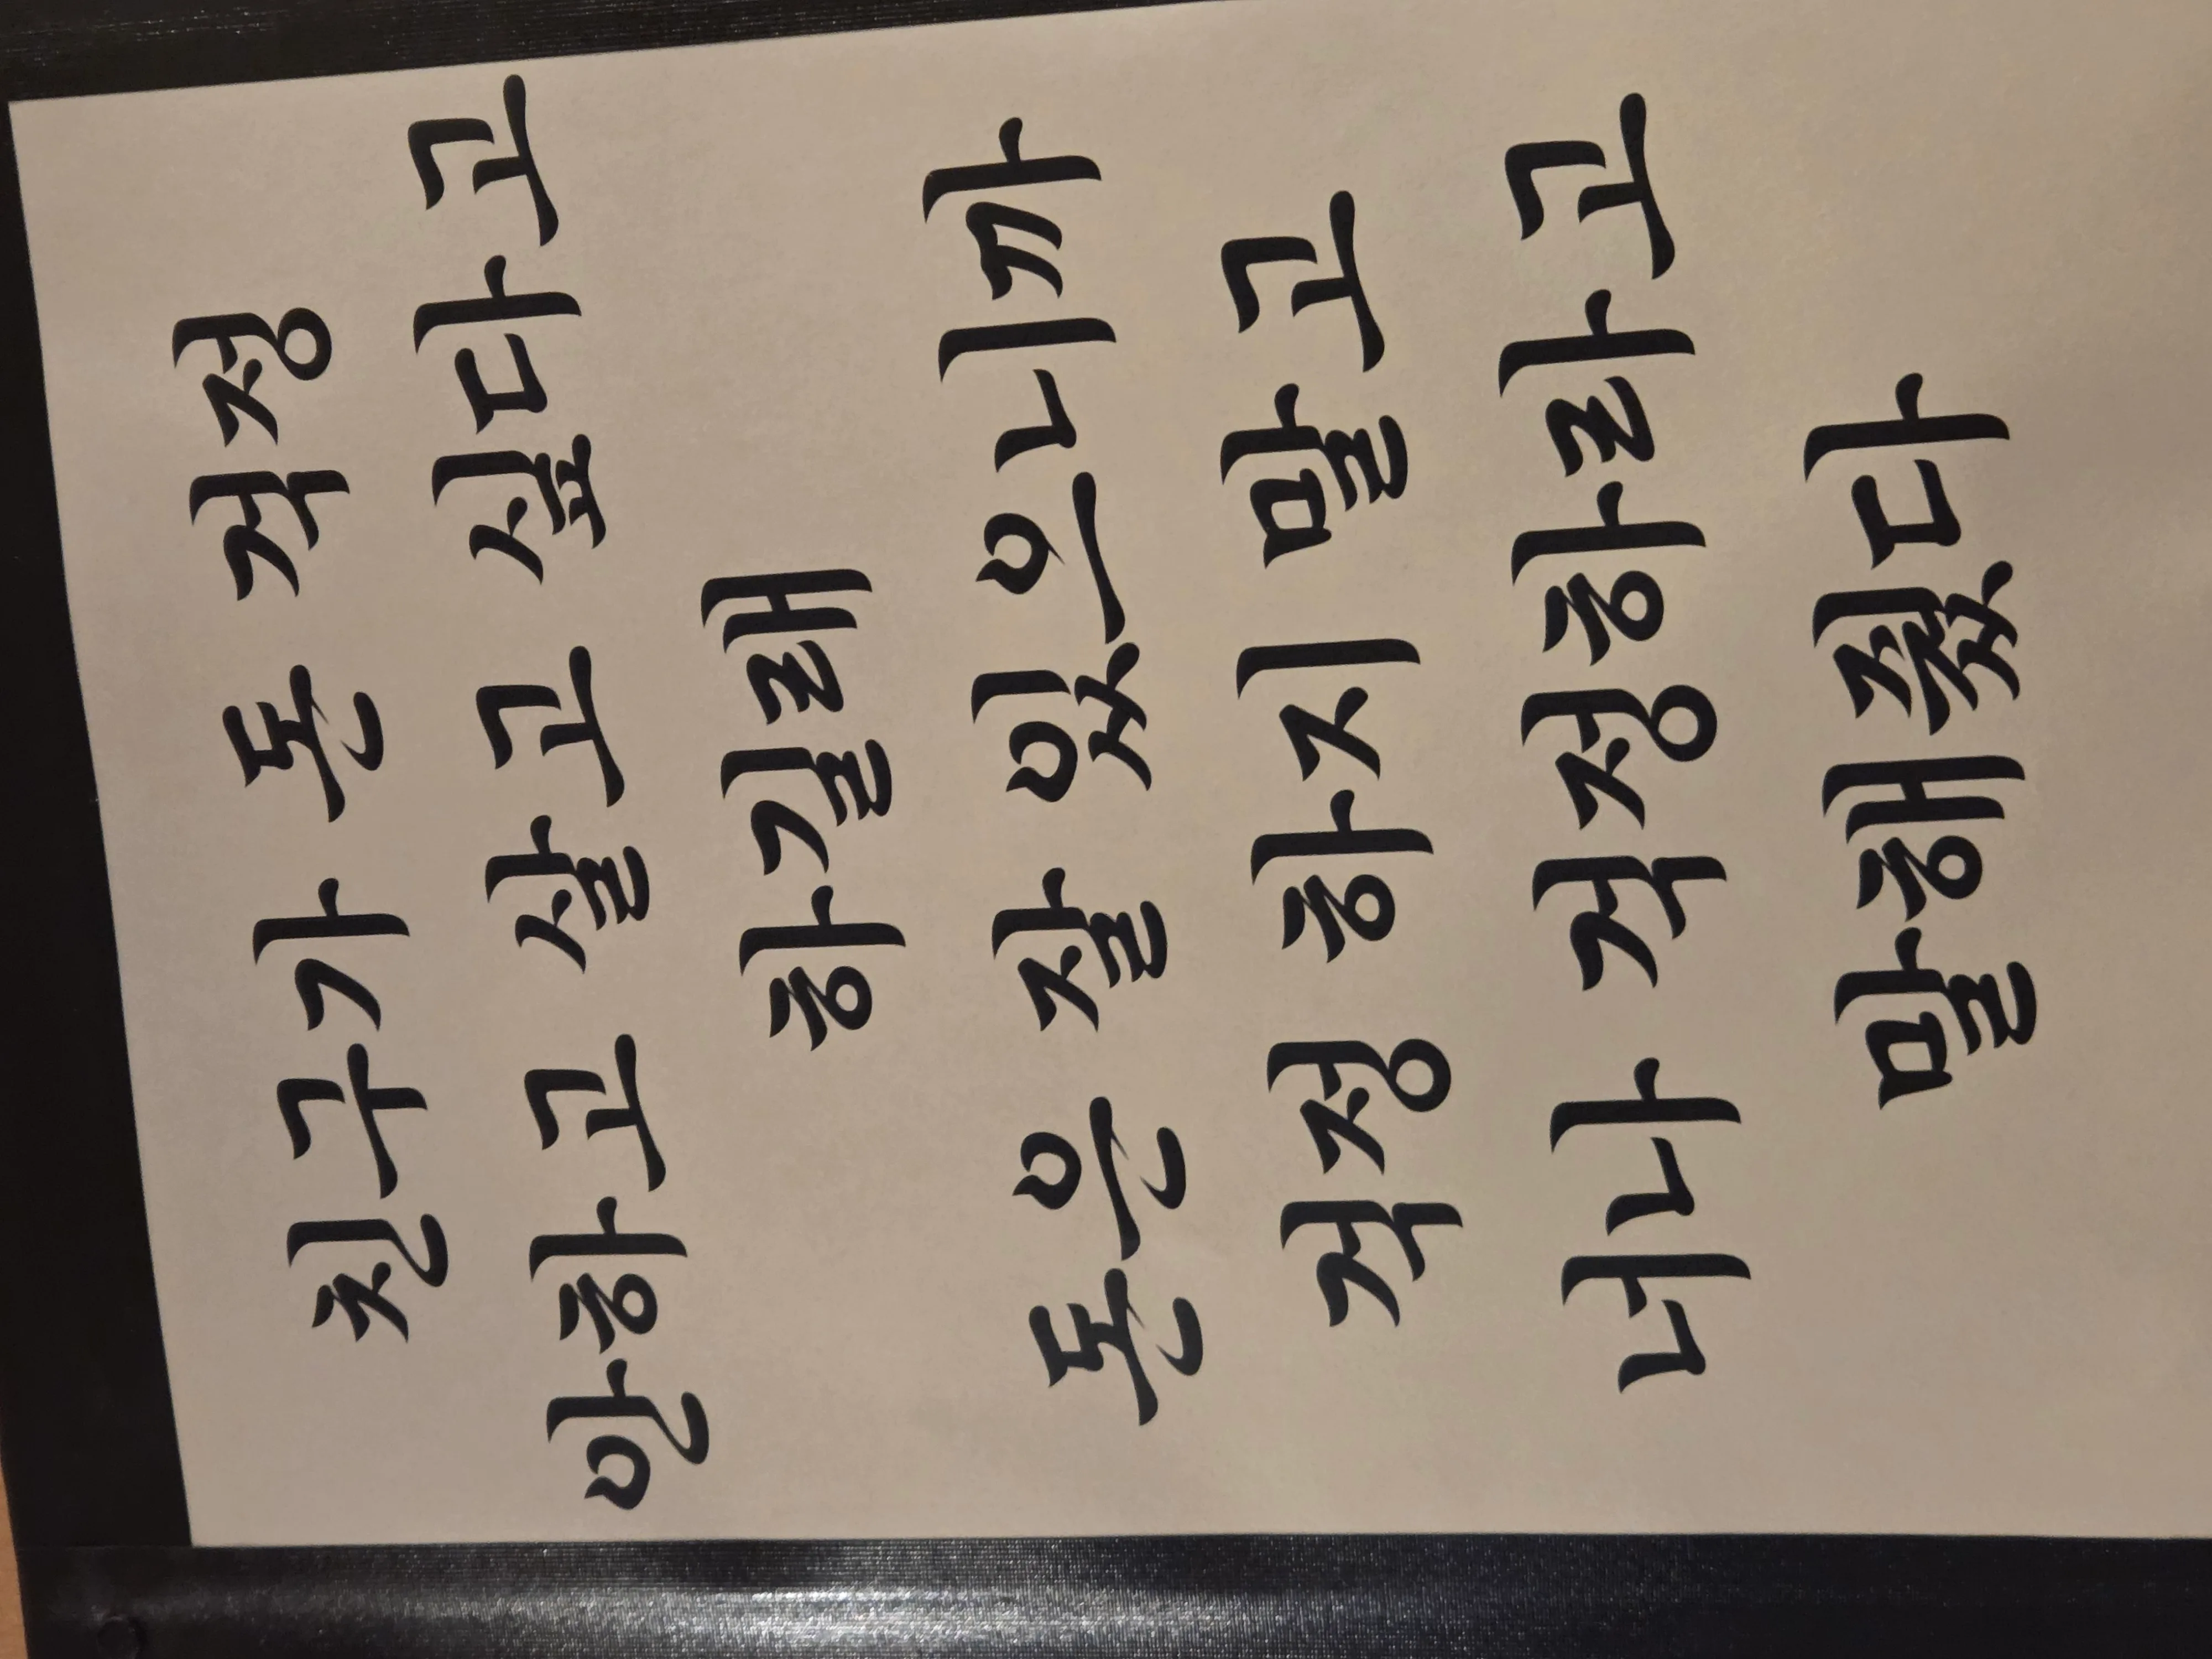 친구가 돈 걱정
안하고 살고 싶다고
하길래
돈은 잘 있으니까
걱정 하지 말고
너나 걱정하라고
말해줬다